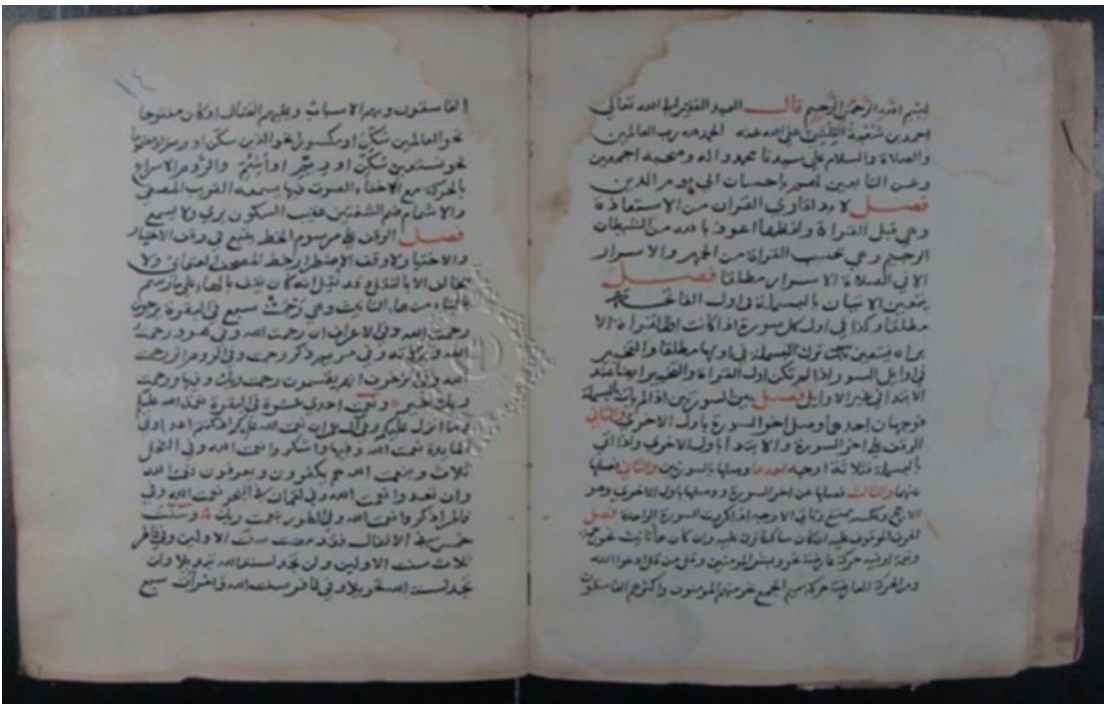 بسم الله الرحمن الرحيم قال العبد الفقير الله تعالى
احمد بن عفى الله عنه الحمد لله رب العالمين
والصلاة والسلام على سيدنا محمد واله وصحبه اجمعين
وعن التابعين لهم باحسان الى يوم الدين
فصل لا بد لقاري القران من الاستعاذة
وهي قبل القراة ولفظها اعوذ بالله من الشيطان
الرجيم وهي بحسب القراة من الجهر والاسرار
الا في الصلاة الاسرار مطلقا فصل
يتعين الاتيان بالبسملة في اول الفاتحة
مطلقا وكذا في اول كل سورة اذا كانت القراة الا
براة فيتعين ترك البسملة في اولها مطلقا والتخيير
في اوايل السور اذا لم تكن اول القراة والتخيير ايضا عند
الابتدا في غير الاوايل فصل بين السورتين اذا لم يات بالبسملة
فوجهان احدهما وصل اخر السورة باول الاخرى والثاني
الوقف على اخر السورة والابتدا باول الاخرى واذا اتى
بالبسملة فثلاثة اوجه احدها وصلها بالسورتين والثاني فصلها
عنهما والثالث فصلها عن اخر السورة ووصلها باول الاخرى وهو
الارجح وعكسه يمتنع الاوجه اذا كررت السورة الواحدة فصل
الحرف الموقوف عليه ان كان ساكنا ترك عليه وان كان هاتانيث نحو
او فيه حركة عارضة نحو وبشر المومنين وقل من قل ادعوا الله
ومن الحركة العارضة حركة ميم الجمع نحو منهم المومنون واكثرهم الفاسقون
الفاسقون وبهم الاسباب وعليهم القتال او كان مفتوحا
نحو العالمين سكن او مكسورا نحو الدين سكن او او مضموما
نحو نستعين سكن او او اشم والروم الاسراع
بالحركة مع الاخفاء الصوت فيها يسمعه القريب المصغي
والاشمام ضم الشفتين عقيب السكون يرى ولا يسمع
فصل الوقف على مرسوم الخط يتبع في وقف الاختيار
والاختبار ووقف الاضطرار لخط المصحف العثماني ولا
يخالف الا بالنقل وقد نقل انه كان يقف بالهاء على ما رسم
بالتاء من هاء التانيث وهي رحمت سبع في البقرة يرجون
رحمت الله وفي الاعراف ان رحمت الله وفي هود رحمت
الله وبركاته وفي مريم ذكر رحمت وفي الروم اثر رحمت
الله وفي الزخرف اهم يقسمون رحمت ربك وفيها ورحمت
ربك خير ونعمت احدى عشرة في البقرة نعمت الله عليكم
وما انزل عليكم وفي ال عمران نعمت الله عليكم اذ كنتم اعداء وفي
المايدة نعمت الله وفي النحل
ثلاث وبنعمت الله هم يكفرون ويعرفون نعمت الله
وان تعدوا نعمت الله وفي لقمان في البحر بنعمت الله وفي
فاطر اذكروا نعمت الله وفي الطور بنعمت ربك وسنت
خمس في الانفال فقد مضت سنت الاولين وفي فاطر
ثلاث سنت الاولين ولن تجد لسنت الله تبديلا ولن
تجد لسنت الله تحويلا وفي غافر سنت الله وامرات سبع